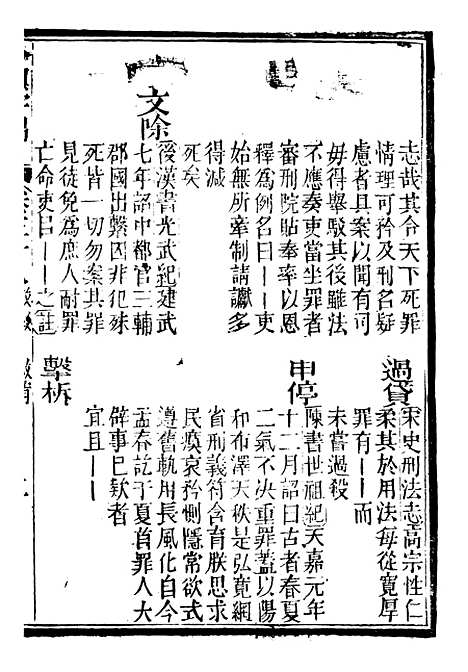 志哉其令天下死罪
情理可矜及刑名疑
慮者具案以聞有司
毋得舉駁其後雖法
不應奏吏當坐罪者
審刑院貼奉率以恩
釋為例名曰丨丨吏
始無所牽制請讞多
得減
死矣
文除
後漢書光武紀建武
七年詔中都官三輔
郡國出繫囚非犯殊
死皆一切勿案其罪
見徒免為庶人耐罪
亡命吏曰丨丨之註
過貸
宋史刑法志高宗性仁
柔其於用法每從寬厚
罪有丨丨而
未嘗過殺
申停
陳書世祖紀天嘉元年
十二月詔曰古者春夏
二氣不決重罪蓋以陽
和布澤天秩是弘寬網
省刑義符含育朕思求
民瘼哀矜惻隱常欲式
遵舊軌用長風化自今
孟春訖于夏首罪人大
辟事已款者
宜且丨丨
擊柝